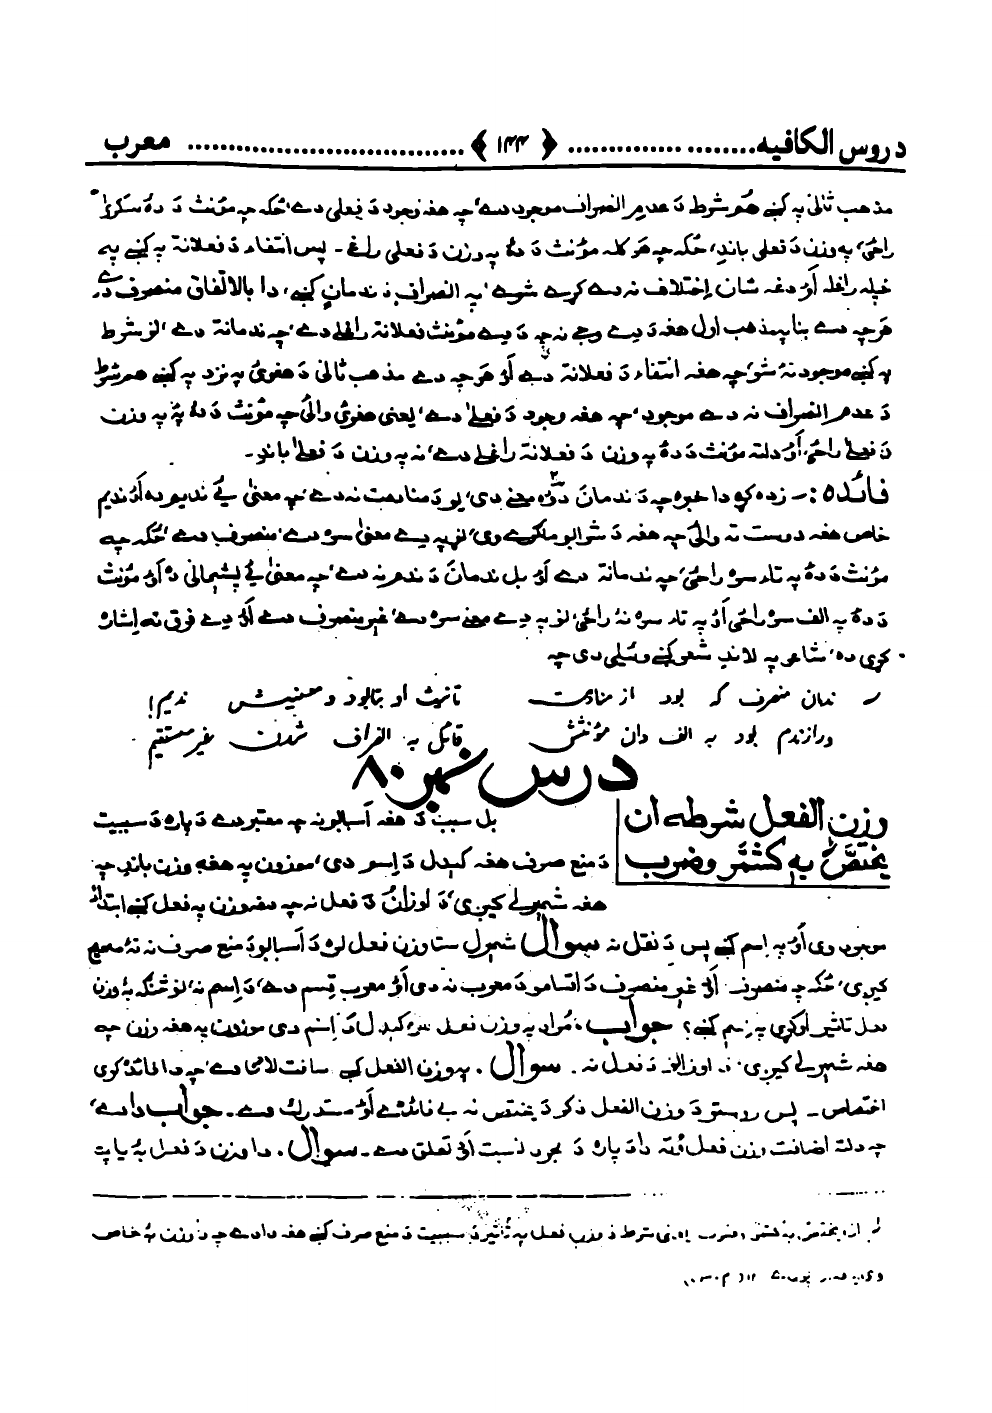 دروس الکافیه ........ ............. ﴿ ۱۴۴ ﴾ .................................. معرب
مذهب ثانی په کښے هم شرط دَ عدم انصراف موجود دے، چه هغه وجود دَ فعلی دے، ځکه چه مؤنث دَ دهٔ سکرٰی
راځی، په وزن دَ فعلی باندِ، ځکه چه هر کله مؤنث دَ دهٔ په وزن دَ فعلی راغے ـ پس انتفاء دَ فعلانة په کښے په
خپله راغله اؤ دغه شان إختلاف نه دے کړے شوے، په انصراف دَ ندمانٍ کښے، دا بالاتفاق منصرف دے.
هر چه دے بنا په مذهب اول هغه دِیے وجے نه چه دَ دیے مؤنث فعلانة راغلے دے، چه ندمانة دے، نو شرط
په کښے موجود نهٔ شو، چه هغه انتفاء دَ فعلانة دے اؤ هر چه دے مذهب ثانی دَ هغویٔ په نزد په کښے هم شرط
دَ عدم انصراف نه دے موجود، چه هغه وجود دَ فعلیٰ دے، یعنی هغویٔ وائی چه مؤنث دَ دهٔ به په وزن
دَ فعلیٰ راځی، اؤ دلته مؤنث دَ دهٔ په وزن دَ فعلانة راغلے دے، نه په وزن دَ فعلیٰ باندِ ـ
فائده :ـ زده کړه دا خبره چه دَ ندمان دوه معنے دی، یو دَ منادمت نه دے، چه معنیٰ ئے ندیم دے اؤ ندیم
خاص هغه دوست ته وائی چه هغه دَ شرابو ملگرے وی، نو په دیے معنیٰ سره دے، منصرف دے، ځکه چه
مؤنث دَ دهٔ په تاء سره راځی، چه ندمانة دے اؤ بل ندمان دَ ندم نه دے، چه معنیٰ ئے پښیمانی ده اؤ مؤنث
دَ دهٔ په الف سره راځی اؤ په تاء سره نهٔ راځی، نو په دے معنے سره دے، غیر منصرف دے اؤ دِے فرق ته إشاره
کړی ده، شاعر په لاندِ شعر کښے وئیلی دی چه
ندمان منصرف که بود از منادمت تانیث او بتا بود و معنیش ندیم!
ور از ندم بود به الف دان مؤنثش قائل به انصراف شدن غیر مستقیم
درس نمبر ۸۰
وزن الفعل شرطه ان
یختصَّ به کشمَّر و ضُرِب
بل سبب دَ هغه اَسبابونه چه معتبر دے دَ پاره دَ سببیت
دَ منع صرف هغه کېدل دَ إسم دی، موزون په هغه وزن باندِ چه
هغه شمېرلے کیږی، دَ اوزانُ دَ فعل نه چه هغه وزن په فعل کښے ابتداءً
موجود وی اؤ په إسم کښے پس دَ نقل نه سوال شمېرل ستا وزن فعل لره دَ اَسبابو دَ منع صرف نه نهٔ صحیح
کیږی، ځکه چه منصرف اؤ غیر منصرف دَ اقسامو دَ معرب نه دی اؤ معرب قسم دے، دَ إسم نه، نو څنگه به وزن
فعل تاثیر اوکړی په إسم کښے؟ جواب، مراد په وزن فعل سره کېدل دَ إسم دی موزون په هغه وزن چه
هغه شمېرلے کیږی دَ اوزانُ دَ فعل نه. سوال. په وزن الفعل کښے اضافت لامی دے، چه دا فائده کوی
اختصاص ـ پس روستو دَ وزن الفعل ذکر دَ یختص نه بے فائدے اؤ مستدرك دے ـ جواب دا دے،
چه دلته اضافت وزن فعل ته دا دَ پاره دَ مجرد نسبت اؤ تعلق دے ـ سوال. دا وزن دَ فعل به یا په